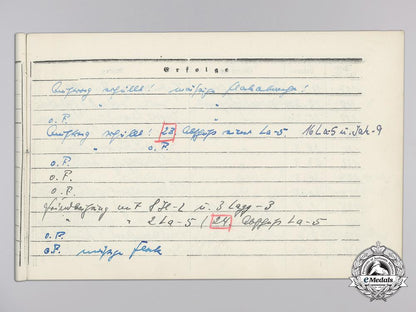 Erfolge
Auftrag erfüllt! mäßige Flakabwehr!
" "
o.F.
Auftrag erfüllt! 23 Abschuß einer La-5. 16 La-5 u. Jak-9
" o.F.
o.F.
o.F.
o.F.
Feindberührung m. 7 8 Jl-2 u. 3 Lagg-3
" " 2 La-5 / 24 Abschuß La-5
o.F.
o.F. mäßige Flak
eMedals